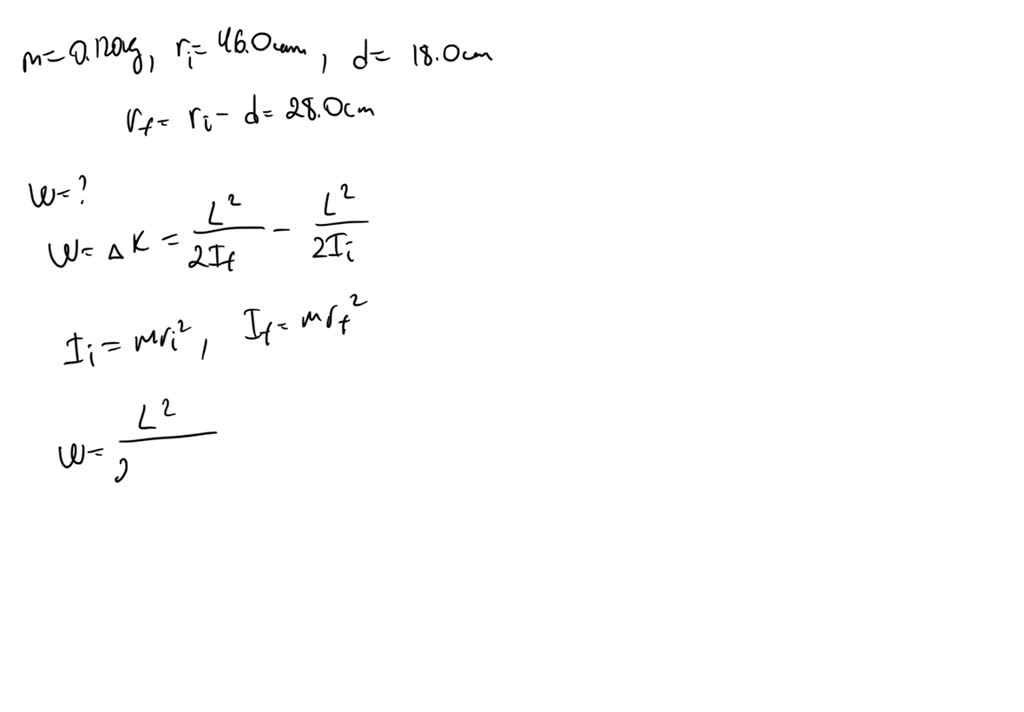 m = 0.120kg, r_i = 46.0cm, d = 18.0cm
r_f = r_i - d = 28.0cm
W = ?
W = ΔK = L²/2I_f - L²/2I_i
I_i = mr_i², I_f = mr_f²
W = L²/2